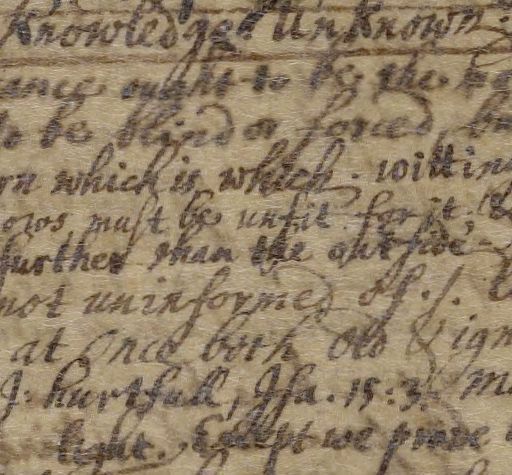 Knowledge Unknown.
ance ought to be the
to be blind or forced,
rn which is which. witting
ows must be unfit for it,
further than the outside
not uninformed of
at Once both Old & ign
hurtfull, Isa. 15:3.
light. Except we prove